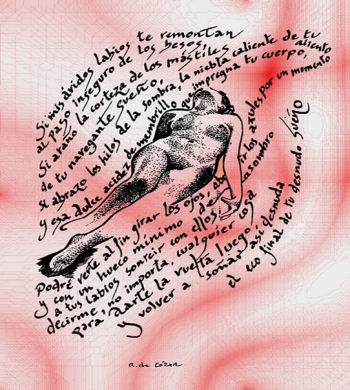 Si mis ávidos labios te remontan
al pozo inseguro de los besos,
Si araño la corteza de los mástiles
de tu navegante sueño,
Si abrazo los hilos de la sombra, la niebla caliente de tu aliento
y esa dulce acidez de membrillo que impregna tu cuerpo,
Podré verte al fin girar los ojos, abrirlos, azules por un momento
y con un hueco mínimo de asombro
a tus labios sonreír con ellos
decirme, no importa, cualquier cosa
para darte la vuelta luego
y volver a soñar así desnuda
el eco final de tu desnudo sueño
R. de Cózar